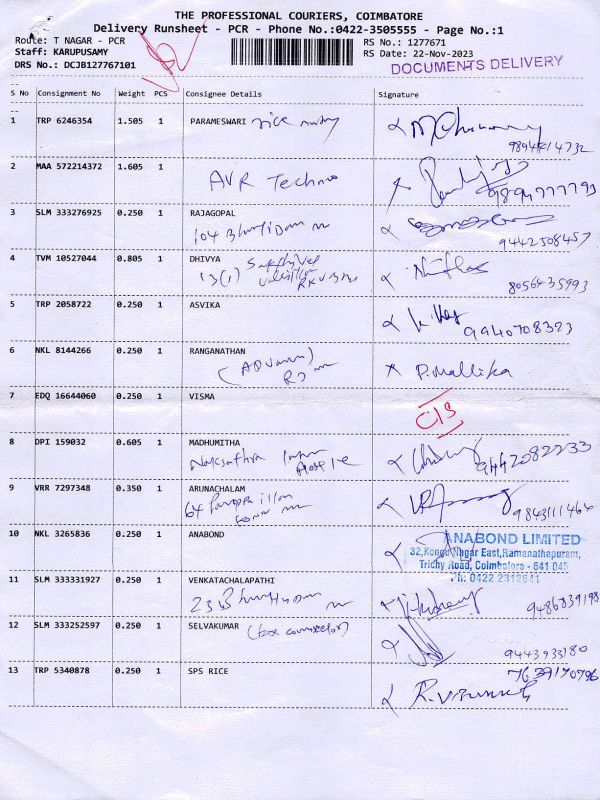 THE PROFESSIONAL COURIERS, COIMBATORE
Delivery Runsheet - PCR - Phone No.:0422-3505555 - Page No.:1
Route: T NAGAR - PCR
RS No.: 1277671
Staff: KARUPUSAMY
RS Date: 22-Nov-2023
DRS No.: DCJB127767101
DOCUMENTS DELIVERY
S No Consignment No Weight PCS Consignee Details Signature
1 TRP 6246354 1.505 1 PARAMESWARI rice
2 MAA 572214372 1.605 1
AVR Techno
3 SLM 333276925 0.250 1 RAJAGOPAL
104
9442508457
4 TVM 10527044 0.805 1 DHIVYA
13(1)
8056435993
5 TRP 2058722 0.250 1 ASVIKA
9940708323
6 NKL 8144266 0.250 1 RANGANATHAN
P. Mallika
7 EDQ 16644060 0.250 1 VISMA
C/S
8 DPI 159032 0.605 1 MADHUMITHA
9442082233
9 VRR 7297348 0.350 1 ARUNACHALAM
64
9843111464
10 NKL 3265836 0.250 1 ANABOND
ANABOND LIMITED
32,Kongu Nagar East,Ramanathapuram,
Trichy Road, Coimbatore - 641 045
Ph: 0422 2312641
11 SLM 333331927 0.250 1 VENKATACHALAPATHI
23
9486839198
12 SLM 333252597 0.250 1 SELVAKUMAR
9443933180
13 TRP 5340878 0.250 1 SPS RICE
7639170796